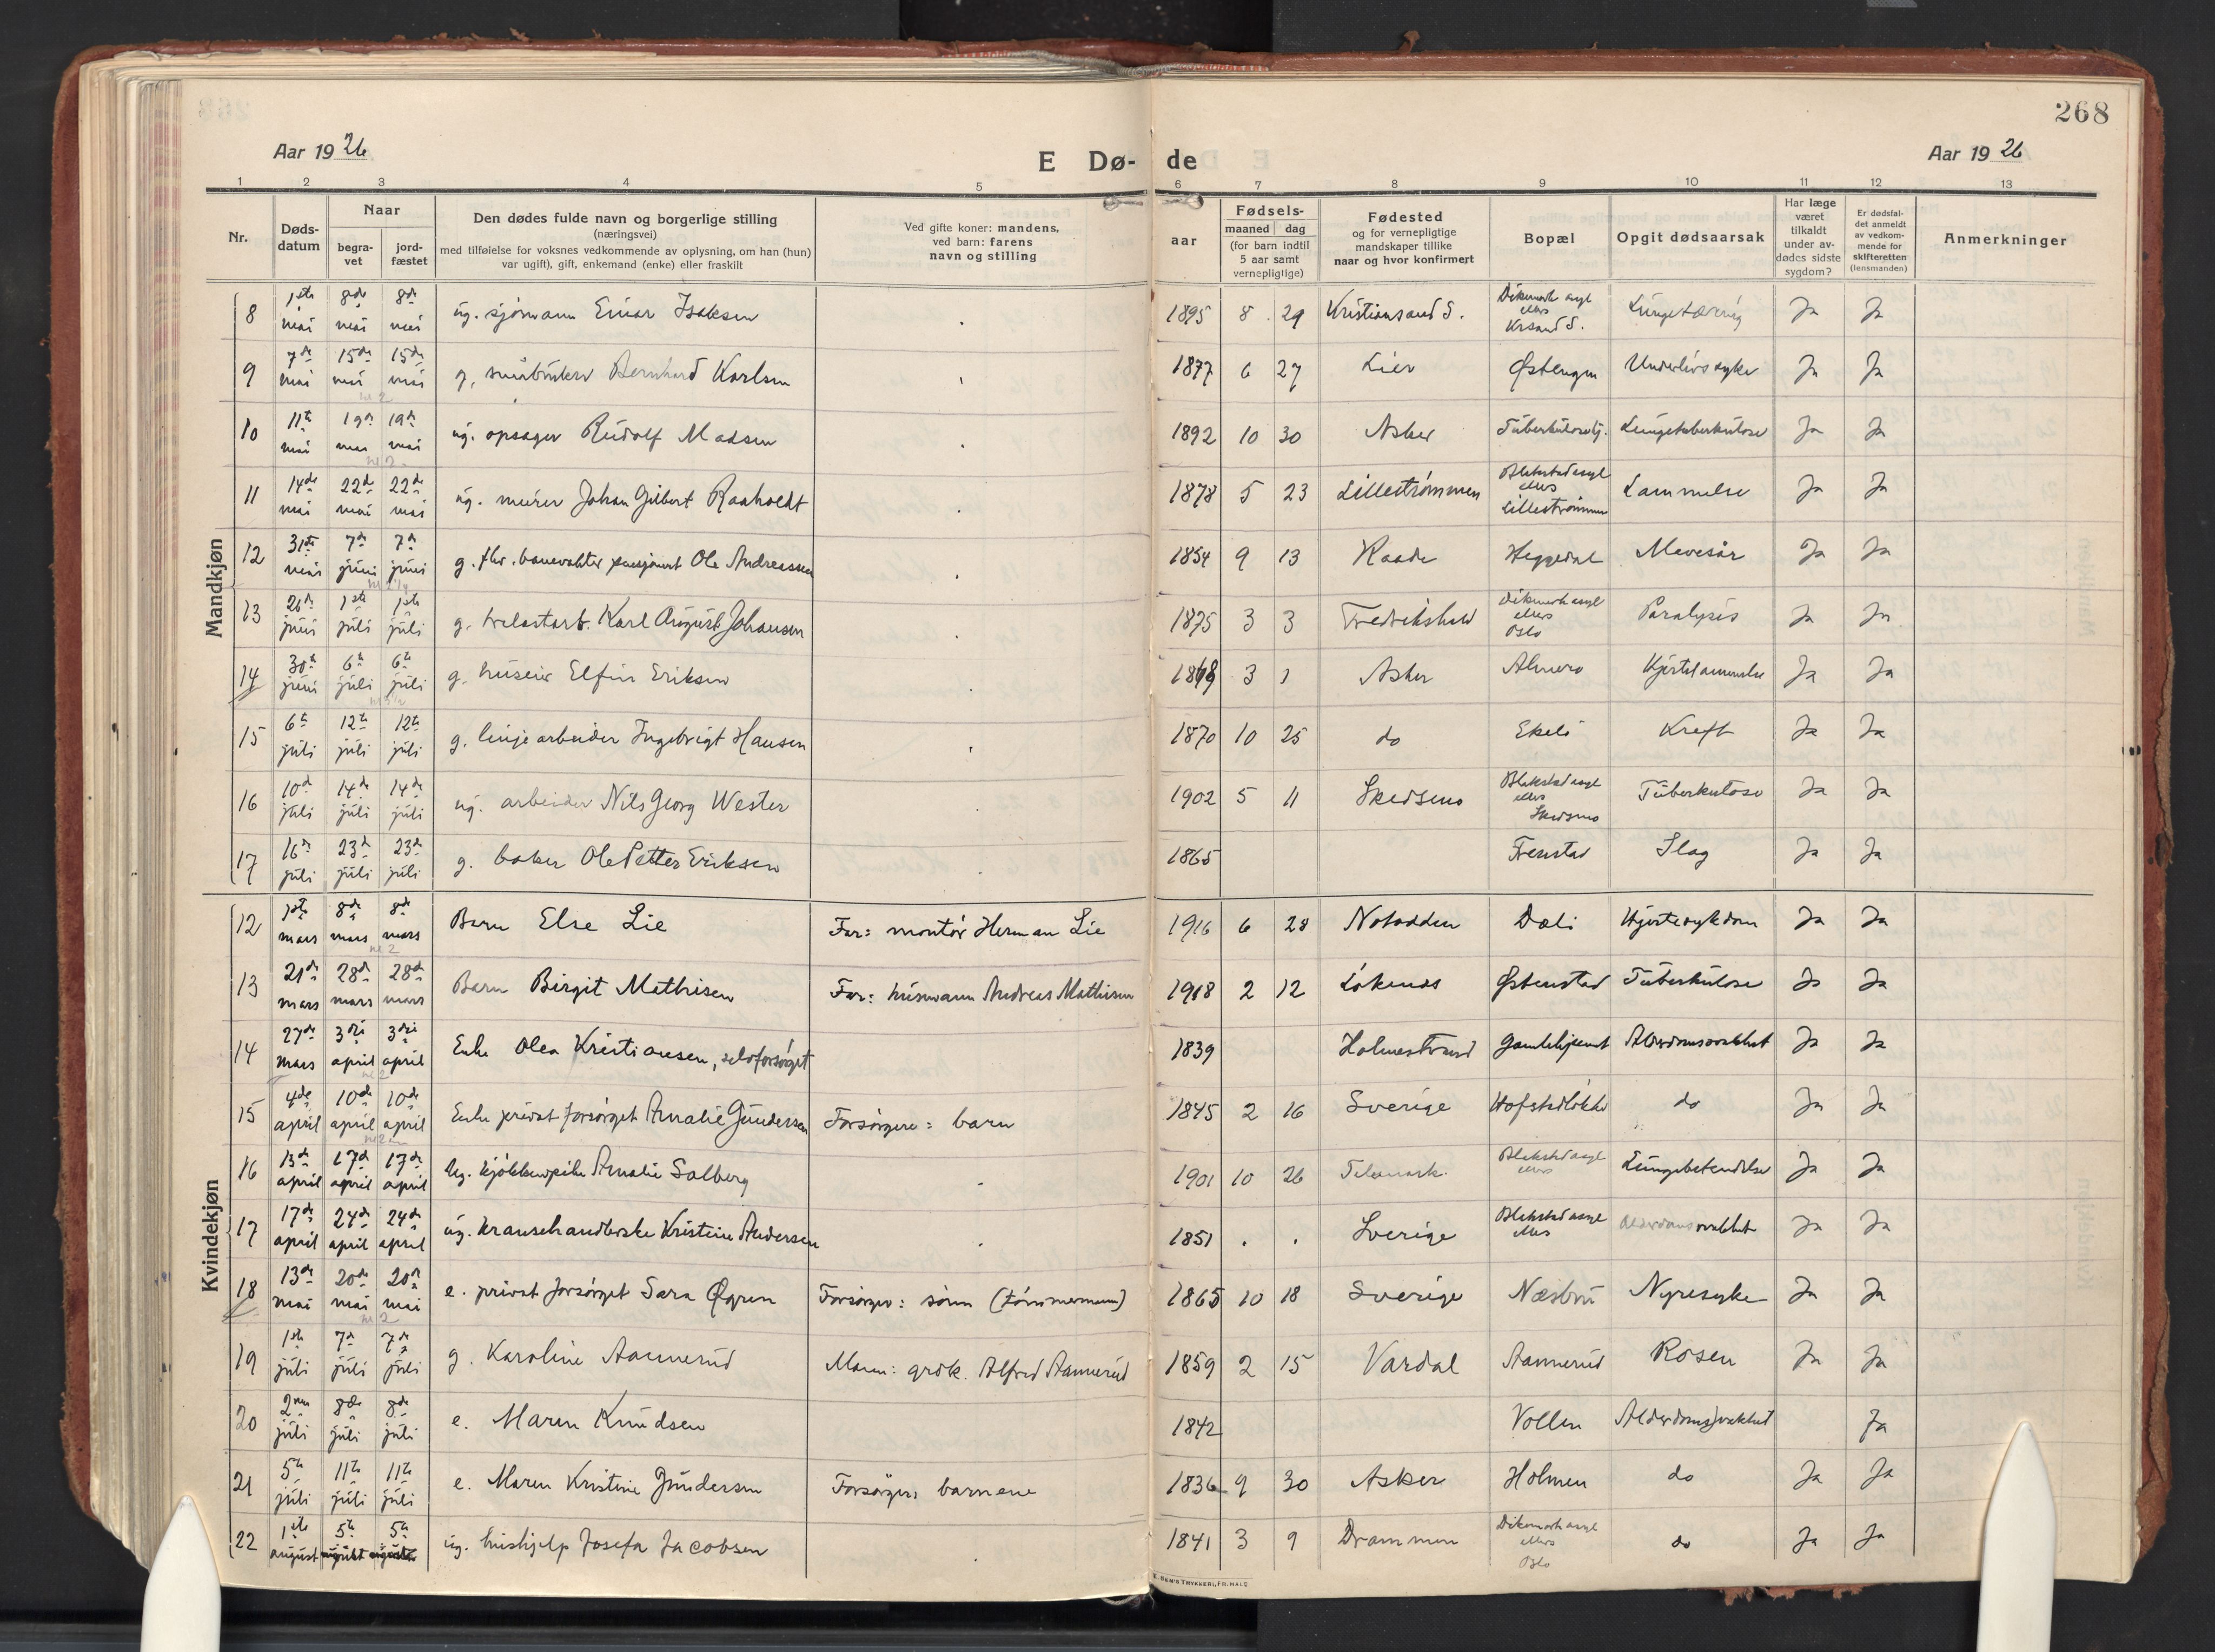 268
Aar 1926
E Dø- de
Aar 1926
1 2 3 4 5 6 7 8 9 10 11 12 13
Nr.
Døds-
datum
Naar
begra-
vet
jord-
fæstet
Den dødes fulde navn og borgerlige stilling
(næringsvei)
med tilføielse for voksnes vedkommende av oplysning, om han (hun)
var ugift), gift, enkemand (enke) eller fraskilt
Ved gifte koner: mandens,
ved barn: farens
navn og stilling
aar
Fødsels-
maaned dag
(for barn indtil
5 aar samt
vernepligtige)
Fødested
og for vernepligtige
mandskaper tillike
naar og hvor konfirmert
Bopæl
Opgit dødsaarsak
Har læge
været
tilkaldt
under av-
dødes sidste
sygdom?
Er dødsfal-
det anmeldt
av vedkom-
mende for
skifteretten
(lensmanden)
Anmerkninger
Mandkjøn
8 1ste mai 8de mai 8de mai ug. sjømann Einar Isaksen 1895 8 29 Kristiansand S. Dikemark asyl ellers Krsand S. Lungetæring Ja Ja
9 7de mai 15de mai 15de mai g. småbruker Bernhard Karlsen 1877 6 27 Lier Østengen Underlivssyke Ja Ja
10 11te mai 19de mai 19de mai ug. opsager Rudolf Madsen 1892 10 30 Asker Lungetuberkulose Ja Ja
11 14de mai 22de mai 22de mai ug. murer Johan Gilbert Raaholdt 1878 5 23 Lillestrømmen Blakstad asyl ellers Lillestrømmen Lammelse Ja Ja
12 31te mai 7de juni 7de juni g. fhv. banevokter pensjonert Ole Andreassen 1854 9 13 Raade Heggedal Mavesår Ja Ja
13 26de juni 1ste juli 1ste juli g. trelastarb. Karl August Johansen 1875 3 3 Fredrikshald Dikemark asyl ellers Oslo Paralysis Ja Ja
14 30te juni 6te juli 6te juli g. huseier Elfin Eriksen 3 1 Asker Hjertelammelse Ja Ja
15 6te juli 12te juli 12te juli g. linjearbeider Ingebrigt Hansen 1870 10 25 do Ekeli Kreft Ja Ja
16 10de juli 14de juli 14de juli ug. arbeider Nils Georg Wester 1902 5 11 Skedsmo Blakstad asyl ellers Skedsmo Tuberkulose Ja Ja
17 16de juli 23de juli 23de juli g. baker Ole Petter Eriksen 1865 Slag Ja Ja
Kvindekjøn
12 1ste mars 8de mars 8de mars Barn Else Lie Far: montør Herman Lie 1916 6 28 Notodden Dæli Hjertesykdom Ja Ja
13 21de mars 28de mars 28de mars Barn Birgit Mathisen Far: husmann Andreas Mathisen 1918 2 12 Løkenes Østenstad Tuberkulose Ja Ja
14 27de mars 3die april 3die april Enke Olea Kristiansen, selvforsørget 1839 Holmestrand Gamlehjemmet Alderdomssvakhet Ja Ja
15 4de april 10de april 10de april Enke privat forsørget Amalie Gundersen Forsørgere: barn 1845 2 16 Sverige Hofstadløkke do Ja Ja
16 13de april 17de april 17de april Ug. kjøkkenpike Amalie Solberg 1901 10 26 Telemark Blakstad asyl ellers Lungebetendelse Ja Ja
17 17de april 24de april 24de april ug. kransehandlerske Kristine Andersen 1851 Sverige Blakstad asyl ellers Alderdomssvakhet Ja Ja
18 13de mai 20de mai 20de mai e. privat forsørget Sara Øgren Forsørger: sønn (tømmermann) 1865 10 18 Sverige Næsbru Nyresyke Ja Ja
19 1ste juli 7de juli 7de juli g. Karoline Aannerud Mann: grdbr. Alfred Aannerud 1859 2 15 Vardal Aannerud Rosen Ja Ja
20 2nen juli 8de juli 8de juli e. Maren Knudsen 1842 Vollen Alderdomssvakhet Ja
21 5te juli 11te juli 11te juli e. Maren Kristine Gundersen Forsørger: barnene 1836 9 30 Asker Holmen do Ja Ja
22 1ste august 5te august 5te august ug. hushjelp Josefa Jacobsen 1841 3 9 Drammen Dikemark asyl ellers Oslo do Ja Ja